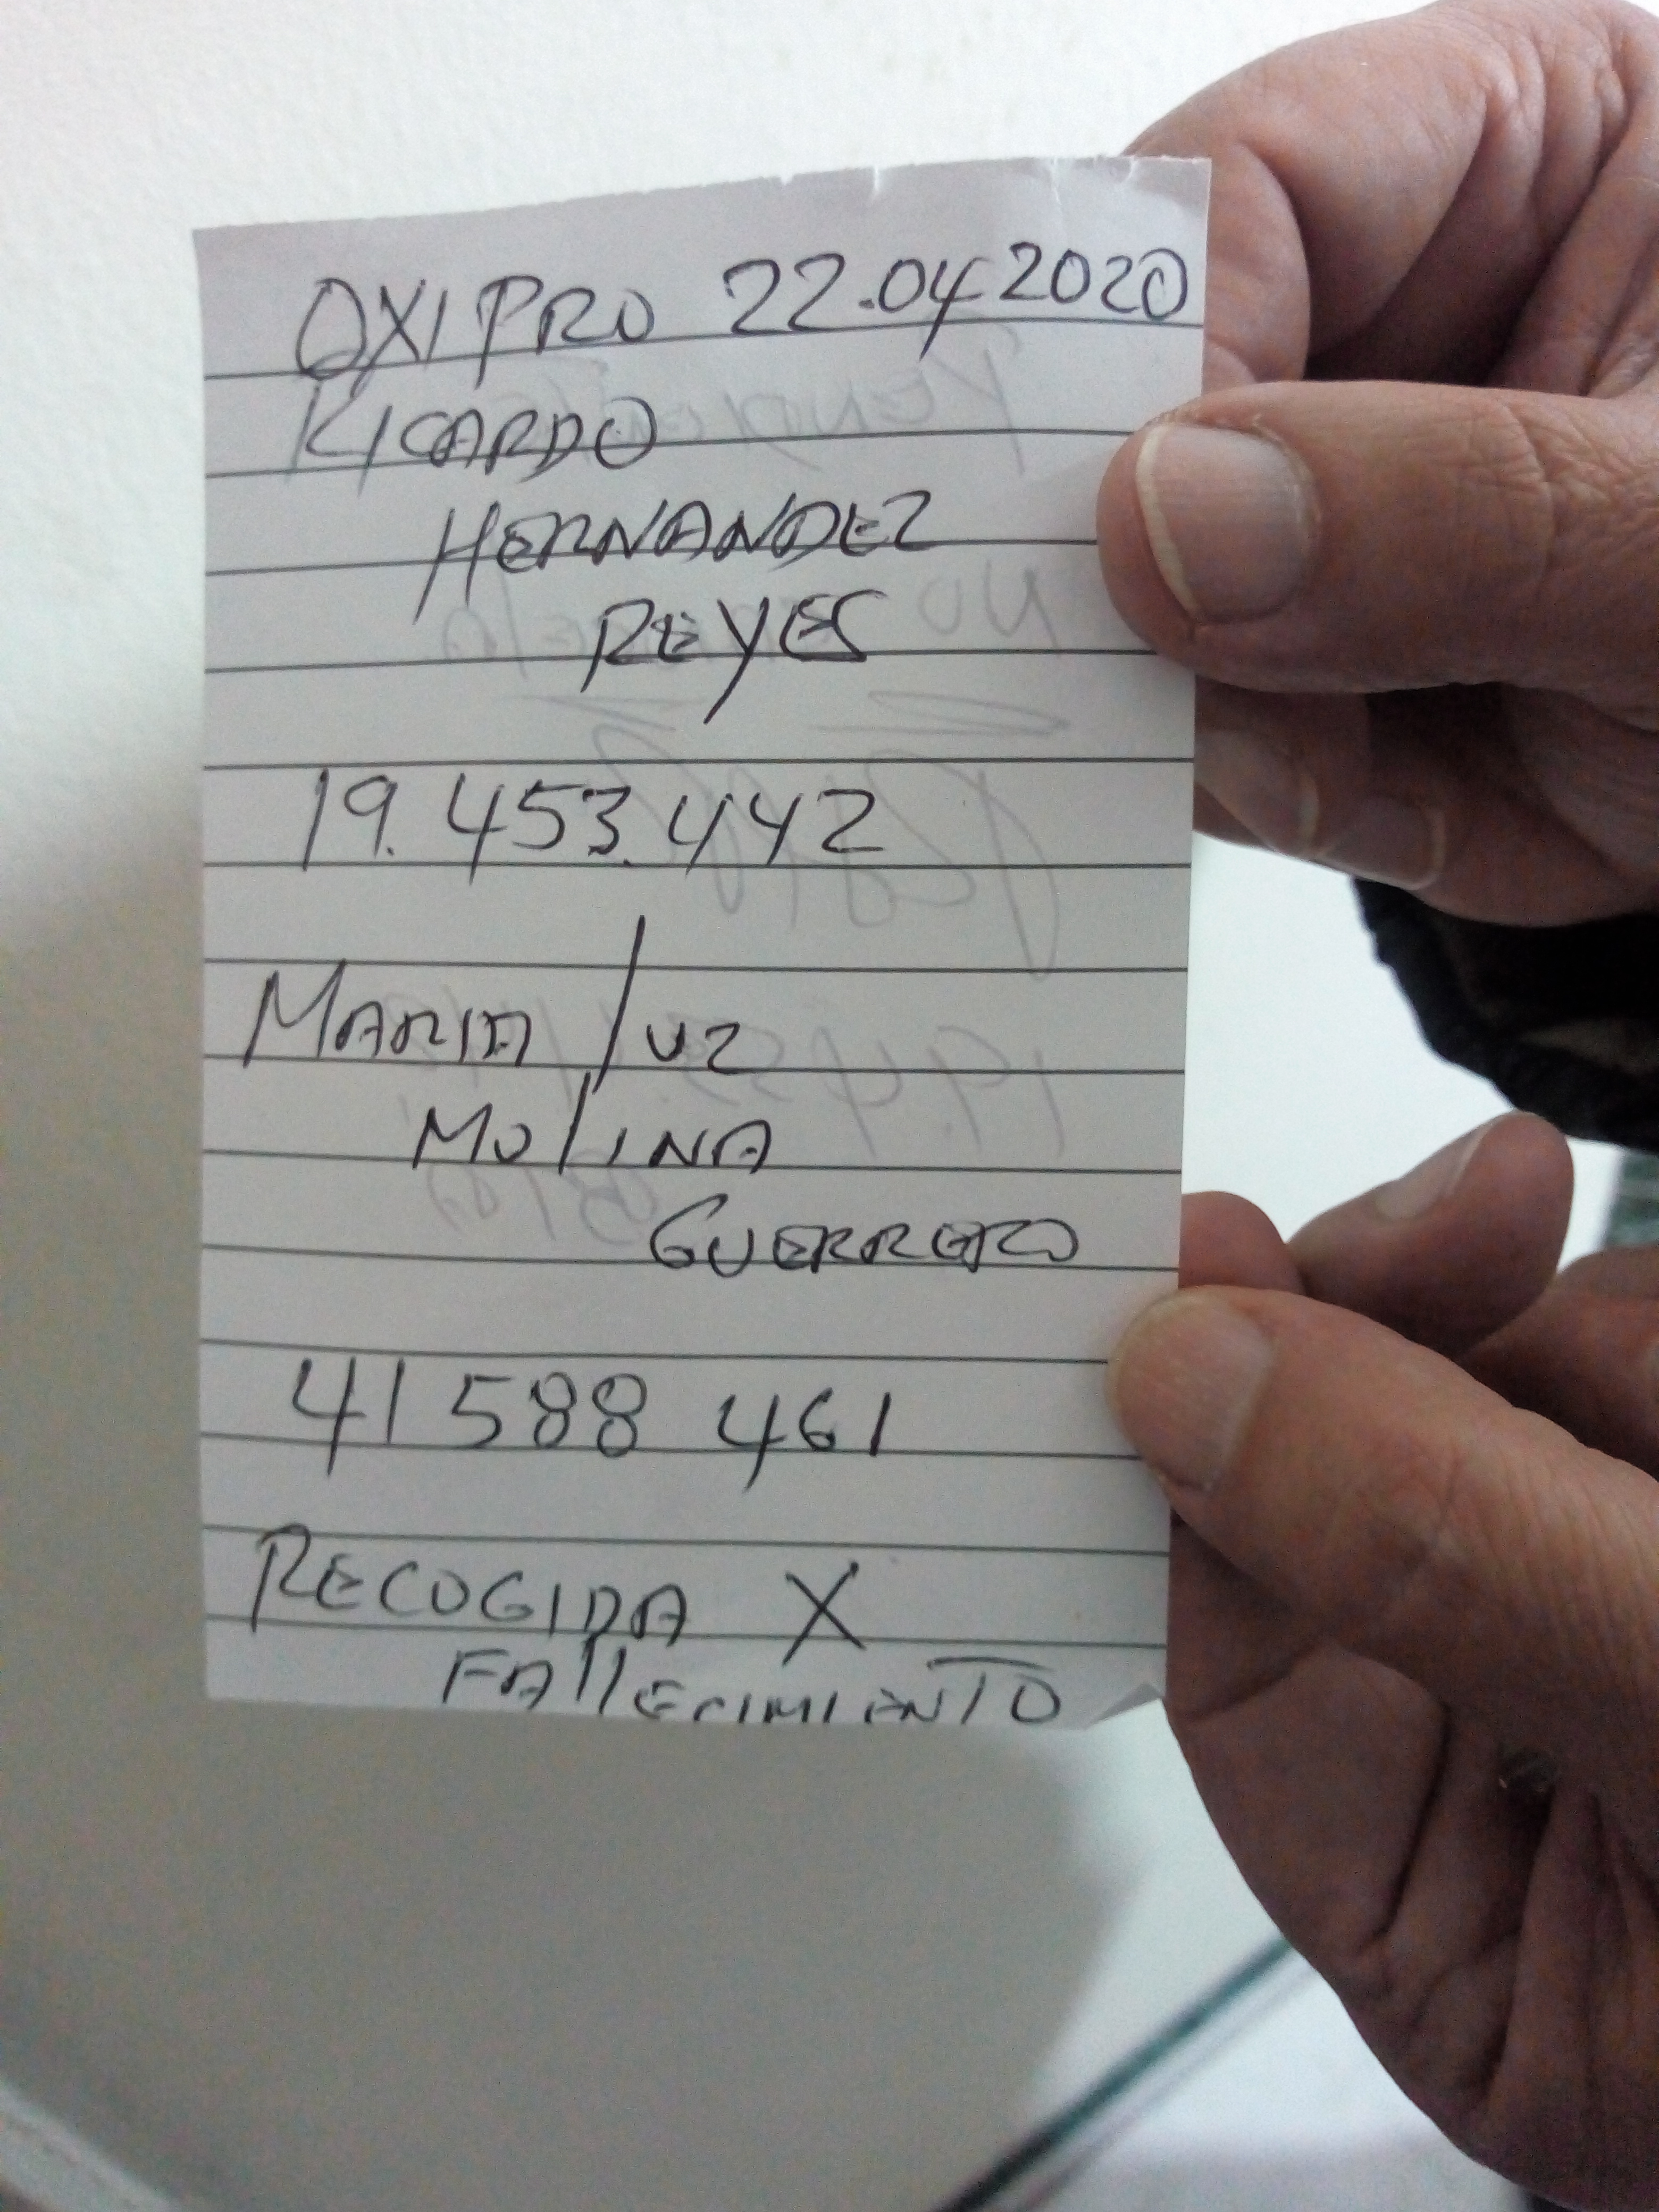 OXIPRO 22.04 2020
RICARDO
HERNANDEZ
REYES
19.453.442
MARIA LUZ
MOLINA
GUERRERO
41 588 461
RECOGIDA X
FALLECIMIENTO